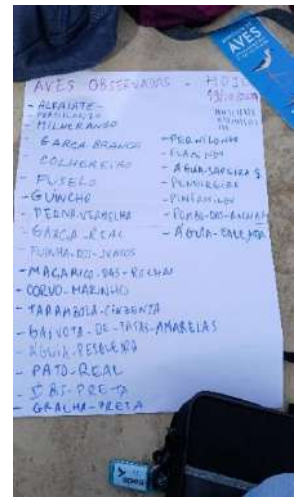 AVES
AVES OBSERVADAS - HOJE
- ALFAIATE -
- MILHERANGO
- GARÇA BRANCA
- COLHEREIRO
- FUSELO
- GUINCHO
- PERNA-VERMELHA
- GARÇA-REAL
- FUINHA-DOS-JUNCOS
- MAÇARICO-DAS-ROCHAS
- CORVO-MARINHO
- TARAMBOLA-CINZENTA
- GAIVOTA-DE-PATAS-AMARELAS
- ÁGUIA-PESQUEIRA
- PATO-REAL
- ÍBIS-PRETA
- GRALHA-PRETA
- PERNILONGO
- FLAMINGO
- ÁGUIA-SAPEIRA
- PENEIREIRO
- PINTASSILGO
- POMBO-DAS-ROCHAS
- ÁGUIA-CALÇADA